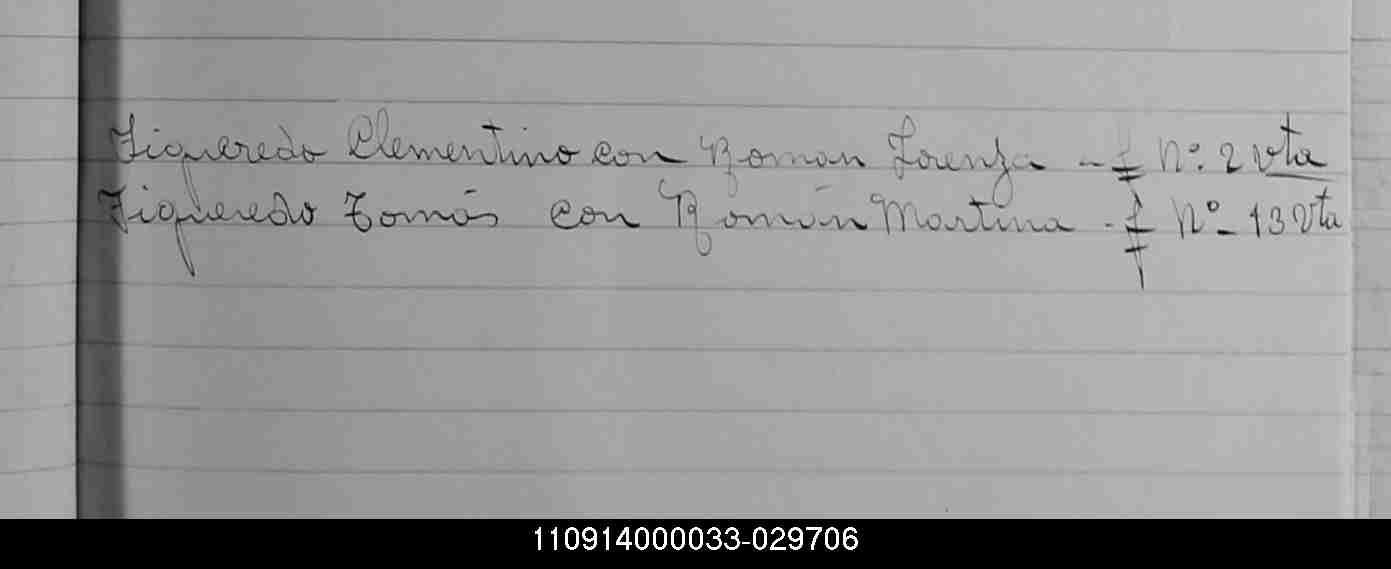 Figueredo Clementino con Roman Lorenza - f Nº. 2 vta
Figueredo Tomás con Román Martina - f Nº - 13 vta
110914000033-029706